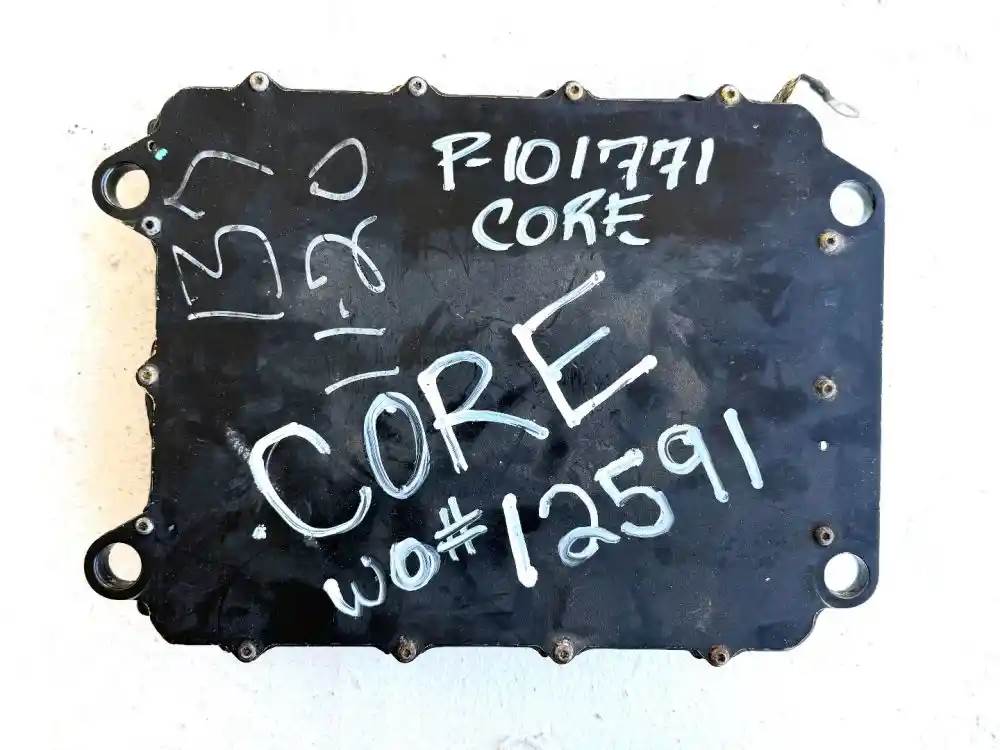 P-101771
CORE
137
11-20
CORE
WO#12591